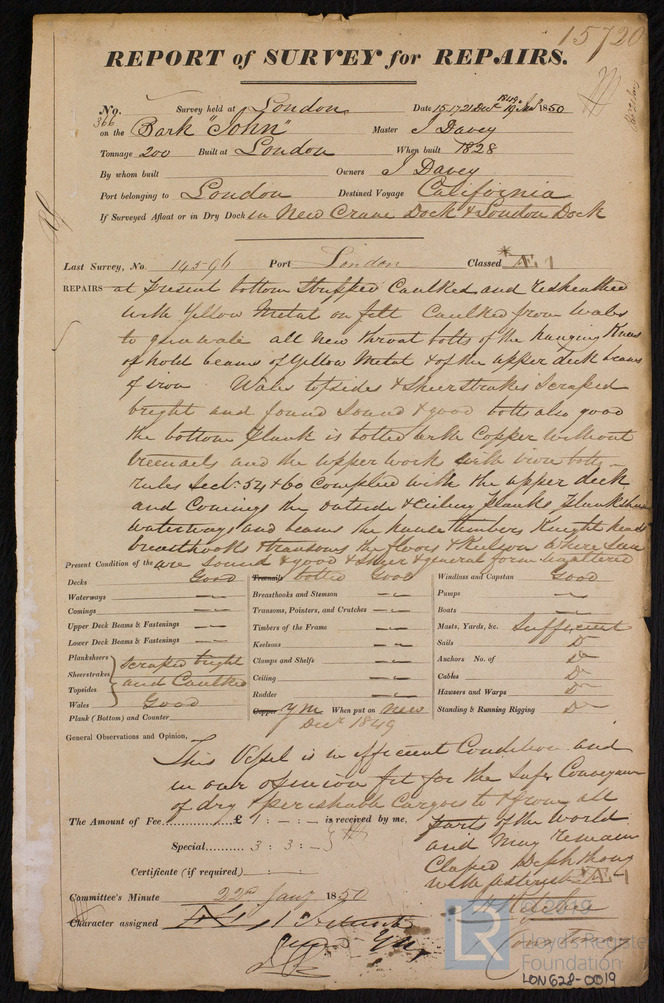 15720
REPORT of SURVEY for REPAIRS.
No. 366 Survey held at London Date 15 17 21 Decr 1849 19 Jany 1850
on the Bark "John" Master J Davey
Tonnage 200 Built at London When built 1828
By whom built Owners J Davey
Port belonging to London Destined Voyage California
If Surveyed Afloat or in Dry Dock in New Crane Dock & London Dock
Last Survey, No. 14596 Port London Classed *Æ 1
REPAIRS at present bottom Stripped Caulked and resheathed
with Yellow Metal on felt Caulked from Wales
to gunwale all new throat bolts of the hanging Knees
of hold beams of Yellow Metal & of the upper deck beams
of iron Wales topsides & Sheerstrakes Scraped
bright and found Sound & good bolts also good
the bottom plank is bolted with Copper without
treenails and the upper work with iron bolts
rules Sectn 54 & 60 Complied with the upper deck
and Comings the outside & Ceiling planks plankshrs
waterways and beams the hawse timbers Knightheads
breasthooks & transoms the floors & Keelson where seen
are Sound & good & Sheer & general form unaltered
Present Condition of the
Decks Good
Waterways
Comings
Upper Deck Beams & Fastenings
Lower Deck Beams & Fastenings
Planksheers
Sheerstrakes
Topsides
Scraped bright
and Caulked
Wales Good
Plank (Bottom) and Counter
Treenails bolted Good
Breasthooks and Stemson
Transoms, Pointers, and Crutches
Timbers of the Frame
Keelsons
Clamps and Shelfs
Ceiling
Rudder
Copper YM When put on new
Decr 1849
Windlass and Capstan Good
Pumps
Boats
Masts, Yards, &c. Sufficient
Sails Do
Anchors No. of Do
Cables Do
Hawsers and Warps Do
Standing & Running Rigging Do
General Observations and Opinion,
This Vessel is in efficient Condition and
in our opinion fit for the Safe Conveyance
of dry & perishable Cargoes to & from all
parts of the World
and may remain
Classed Diphthong
with asterisk *Æ 1
The Amount of Fee £ 1 : - : - is received by me,
Special 3 : 3 : -
Certificate (if required)
Committee's Minute 22nd Jany 1850
Character assigned
© 2019
LR
Lloyd's Register
Foundation
LON628-0019